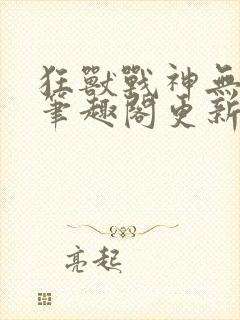 狂獸戰神無
筆趣閣更新
亮起